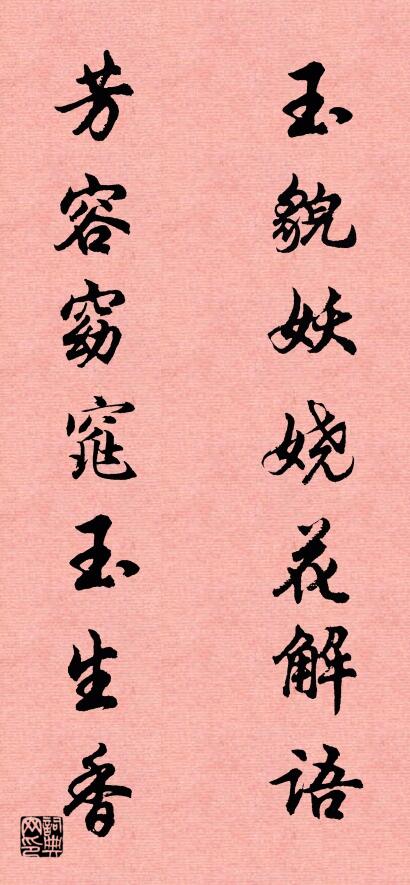 玉貌妖娆花解语
芳容窈窕玉生香
词典网印